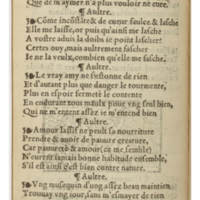 Que de m'aymer n'a plus vouloir ne cure.
¶ Aultre.
Côme incôstâte & de cueur faulce & lasche
Elle me laisse, or puis qu'ainsi me lasche
A vostre aduis la doibs ie point lascher?
Certes ouy, mais aultrement fascher
Ie ne la veulx, combien qu'elle me fasche.
¶ Aultre.
Le vray amy ne s'estonne de rien
Et d'autant plus que danger le tourmente,
Plus en espoir fermeté le contente
En endurant tous maulx pour vng seul bien,
Qui ne m'entent assez ie m'entend bien
¶ Aultre.
Amour laissé ne peult sa nourriture
Prendre & auoir de pauure creature,
Car pauureté & amour (ce me semble)
N'eurent iamais bonne habitude ensemble,
S'il est ainsi c'est bien contre nature.
¶ Aultre.
Vng musequin d'ung assez beau maintien
Trouuay vng iour,